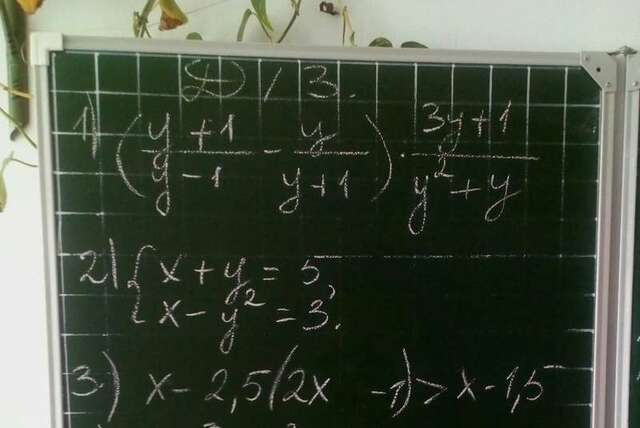 Д/З.
1) (y+1/y-1 - y/y+1) · 3y+1/y²+y
2) { x+y=5,
x-y²=3.
3.) x-2,5(2x -1)>x-1,5